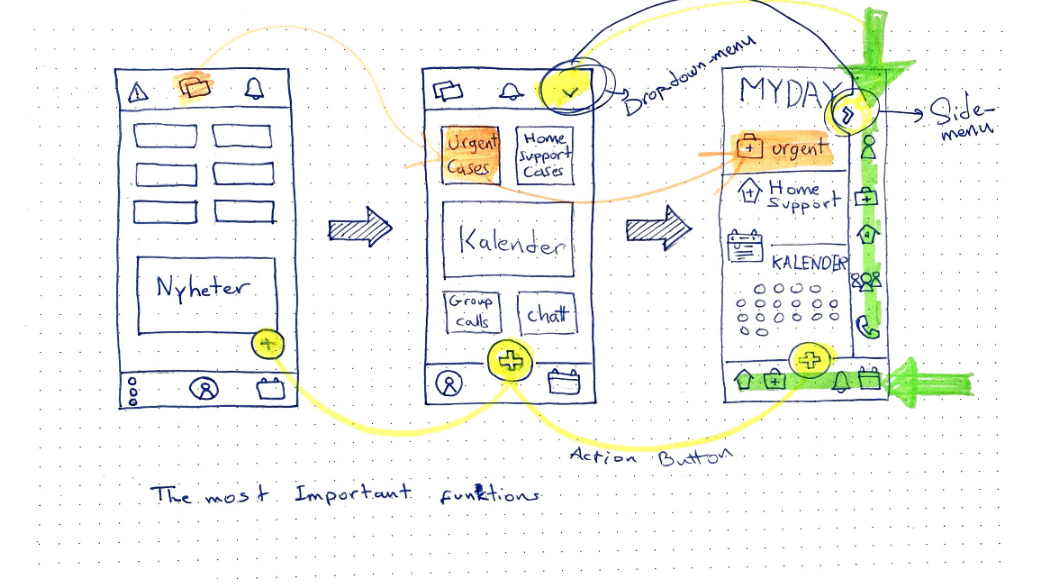 Nyheter
Urgent
Cases
Home
Support
Cases
Kalender
Group
calls
chatt
Drop-down-menu
MYDAY
Side-
menu
urgent
Home
Support
KALENDER
Action Button
The most Important funktions